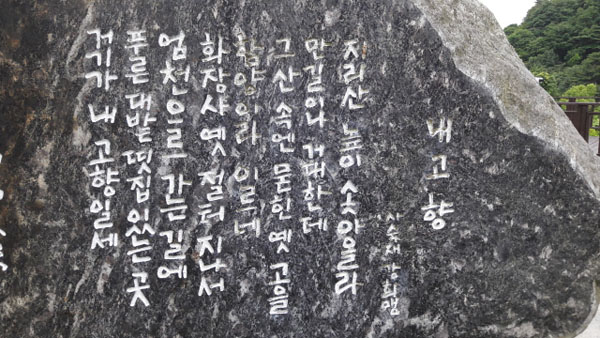 내 고향
사숙재 강희맹
지리산 높이 솟아올라
만길이나 거대한데
그 산 속엔 묻힌 옛 고을
함양이라 이르네
화장사 옛 절터 지나서
엄천으로 가는 길에
푸른 대밭 띳집 있는 곳
거기가 내 고향일세